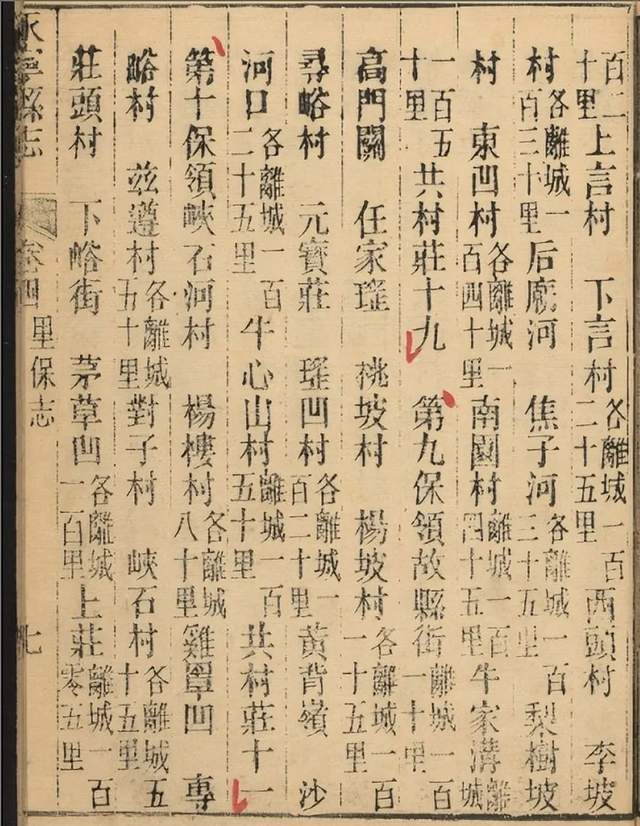 百二十里上言村 下言村各離城一百二十五里西頭村 李坡
村各離城一百三十里后廟河 焦子河各離城一百三十五里梨樹坡
村 東凹村各離城一百四十里南園村離城一百四十五里牛家溝離城
一百五十里共村莊十九 第九保領故縣街離城一百一十里
高門關 任家 桃坡村 楊坡村各離城一百一十五里
尋峪村 元寶莊 凹村各離城一百二十里黃背嶺 沙
河口各離城一百二十五里牛心山村離城一百五十里共村莊十一
第十保領峽石河村 楊樓村各離城八十里雞罩凹 專
峪村 兹遵村各離城五十里對子村 峽石村各離城五十五里
莊頭村 下峪街 茅草凹各離城一百里上莊離城一百零五里
永寧縣志 卷四 里保志 七